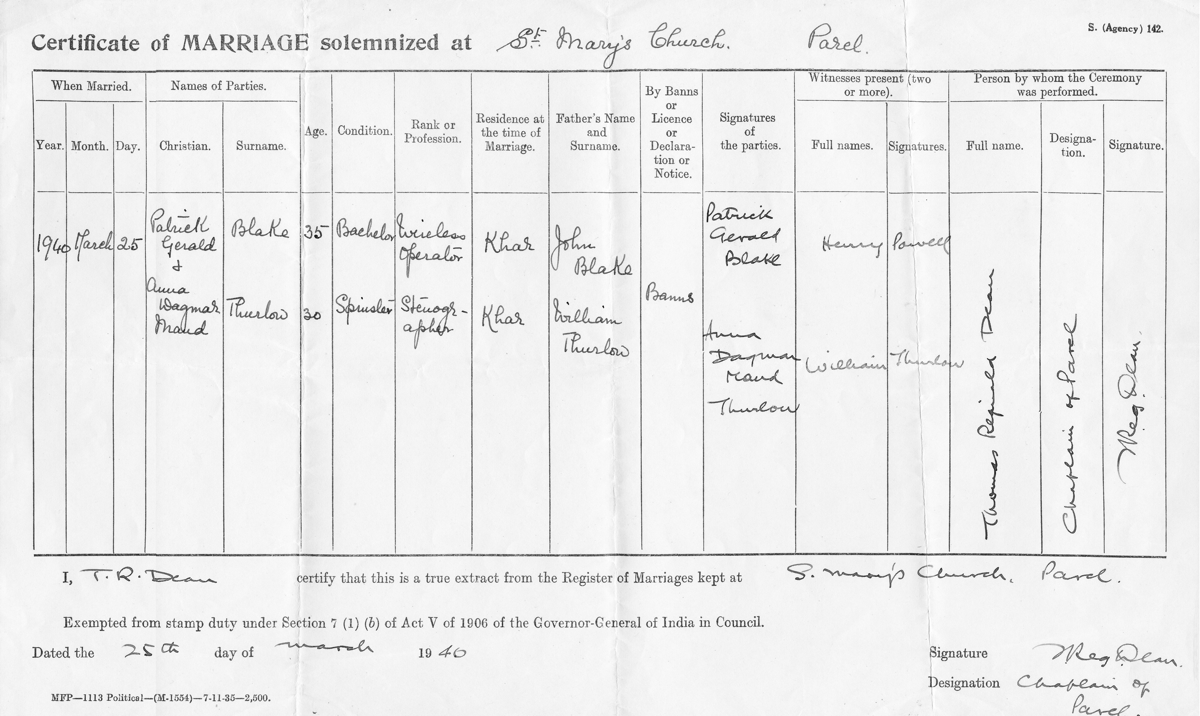 S. (Agency) 142.
Certificate of MARRIAGE solemnized at St. Mary's Church. Parel.
When Married. Names of Parties. Age. Condition. Rank or Profession. Residence at the time of Marriage. Father's Name and Surname. By Banns or Licence or Declara-tion or Notice. Signatures of the parties. Witnesses present (two or more). Person by whom the Ceremony was performed.
Year. Month. Day. Christian. Surname. Full names. Signatures. Full name. Designa-tion. Signature.
1940 March 25 Patrick Gerald & Blake 35 Bachelor Wireless Operator Khar John Blake Patrick Gerald Blake Henry Powell
Anna Dagmar Maud Thurlow 30 Spinster Stenogr-apher Khar William Thurlow Banns Anna Dagmar Maud Thurlow William Thurlow
Thomas Reginald Dean Chaplain of Parel T Reg. Dean.
I, T. R. Dean certify that this is a true extract from the Register of Marriages kept at S. Mary's Church, Parel.
Exempted from stamp duty under Section 7 (1) (b) of Act V of 1906 of the Governor-General of India in Council.
Dated the 25th day of March 1940
Signature T Reg. Dean.
Designation Chaplain of
Parel.
MFP—1113 Political—(M-1554)—7-11-35—2,500.